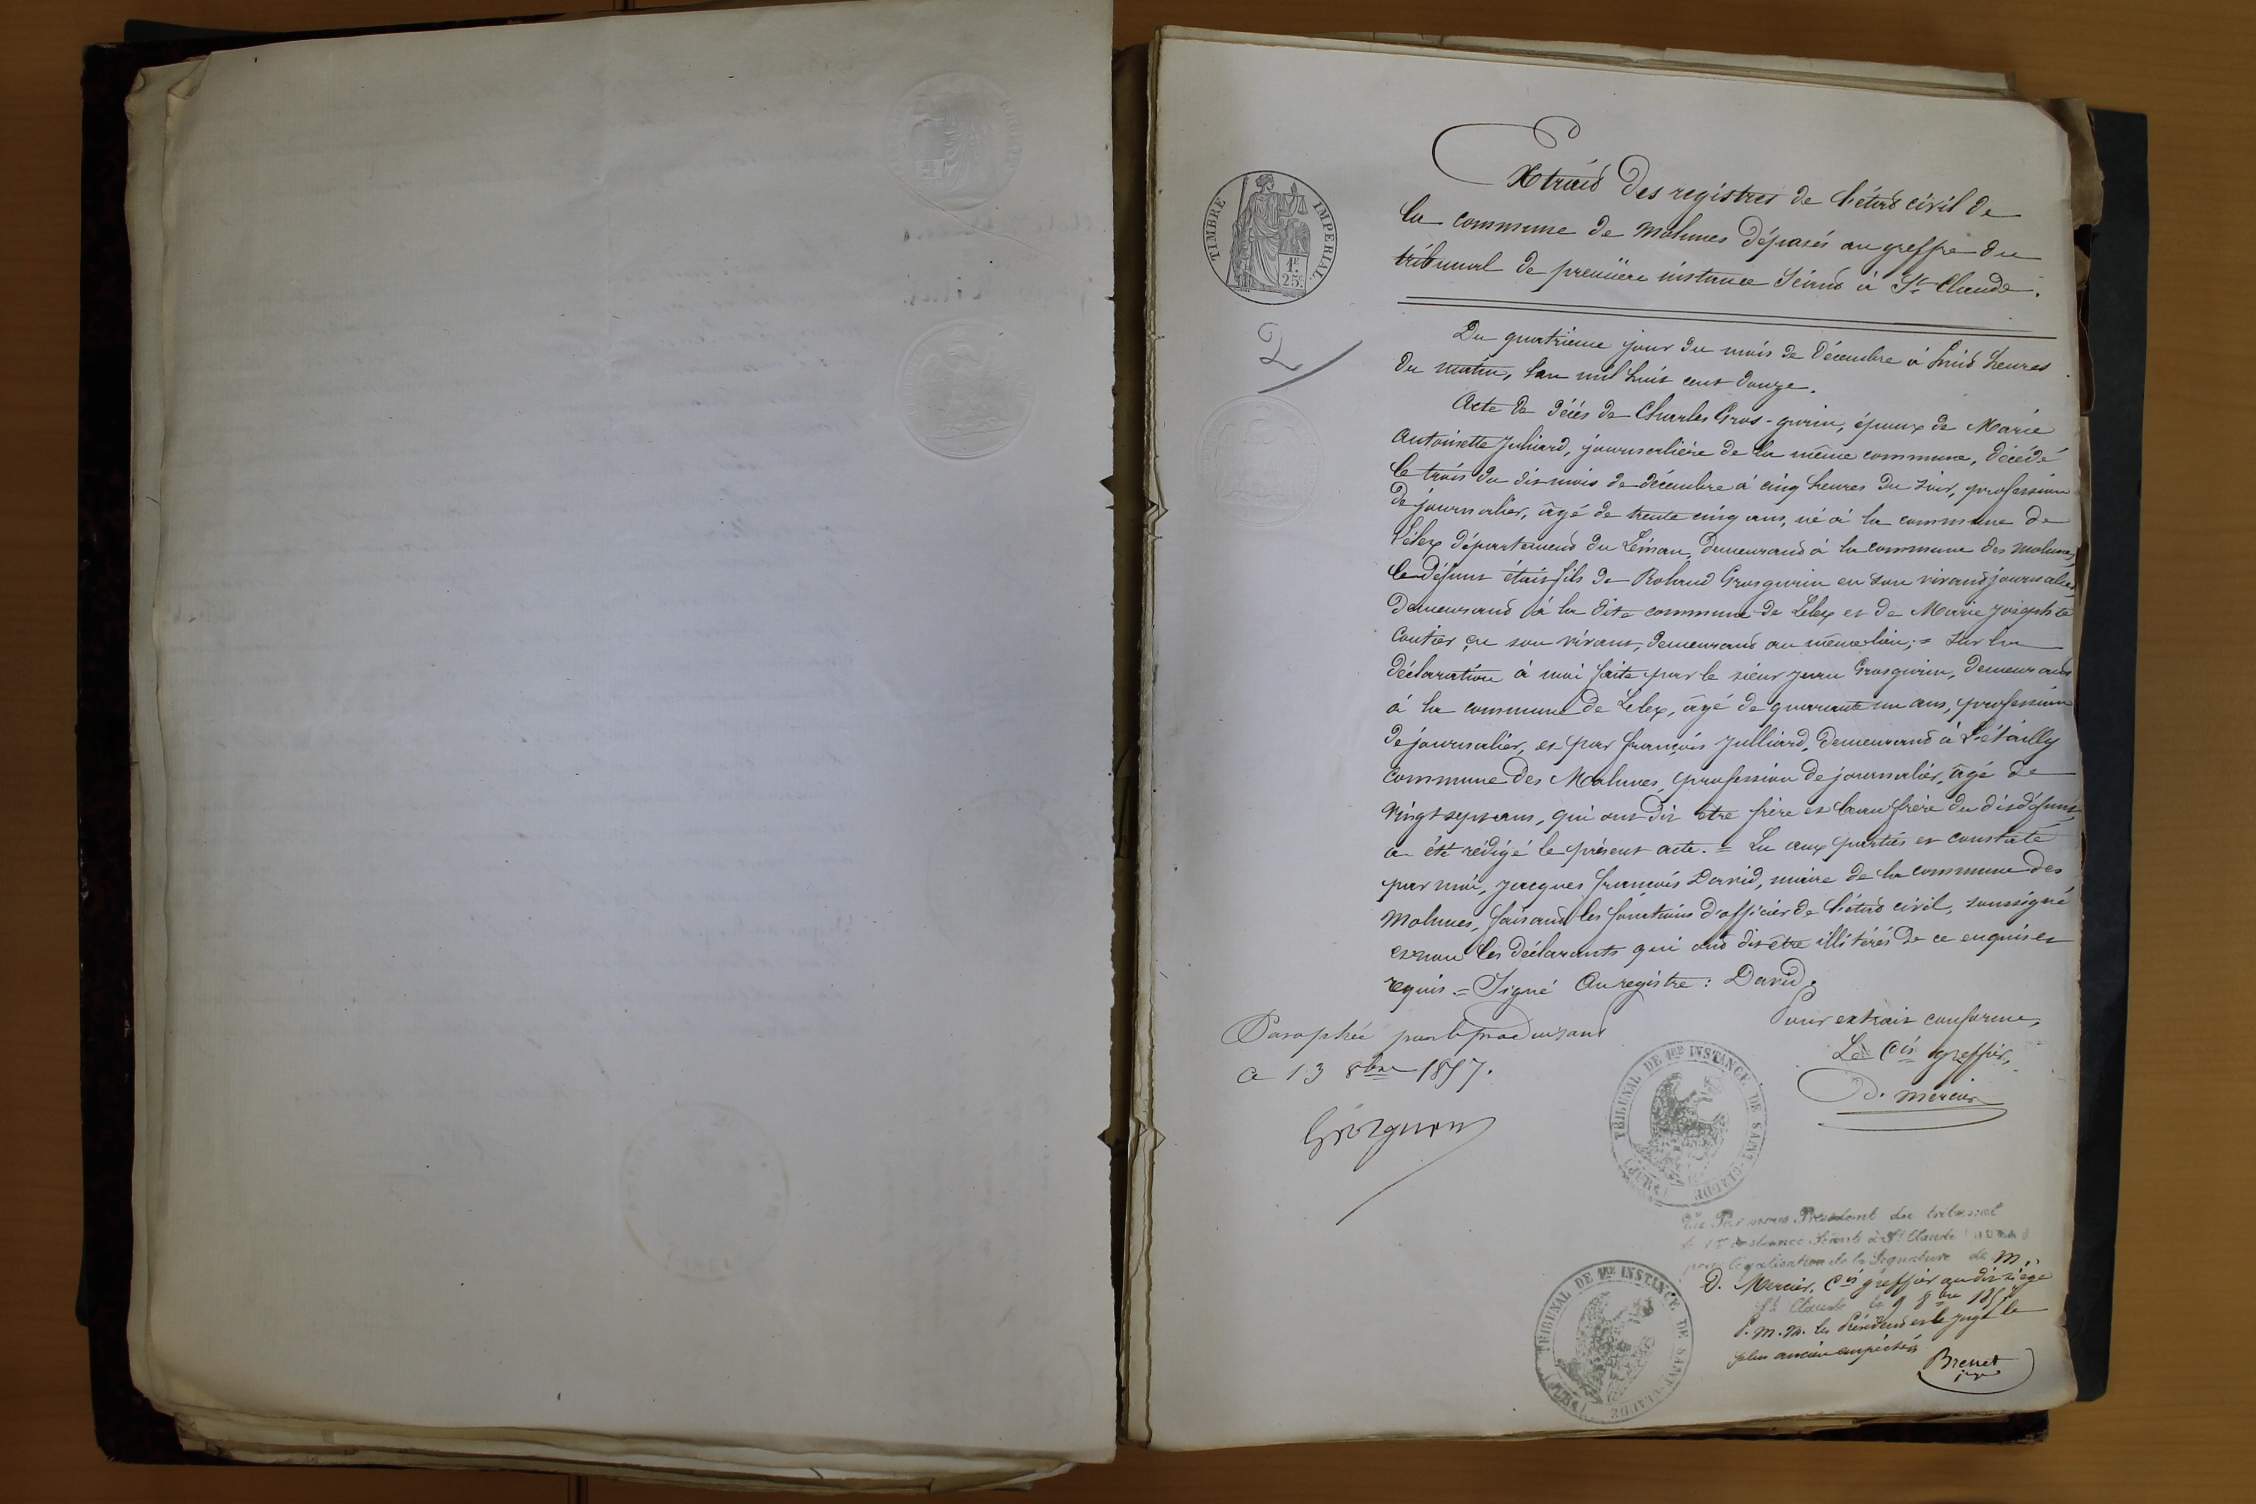 Extrait des registres de l'état civil de
la commune de Molunes déposés au greffe du
tribunal de première instance séant à St Claude.
TIMBRE IMPERIAL
1F 25c
2
Du quatrième jour du mois de Décembre à huit heures
du matin, l'an mil huit cent douze.
Acte de décès de Charles Gros-gurin, époux de Marie
Antoinette Julliard, journalière de la même commune, décédé
le trois du dit mois de décembre à cinq heures du soir, profession
de journalier, âgé de trente cinq ans, né à la commune de
Lélex département du Léman, demeurant à la commune des Molunes,
le défunt était fils de Roland Grosgurin en son vivant journalier,
demeurant à la dite commune de Lélex et de Marie Josephte
Coutier en son vivant, demeurant au même lieu; = sur la
déclaration à moi faite par le sieur Jean Grosgurin, demeurant
à la commune de Lélex, âgé de quarante un ans, profession
de journalier, et par françois Julliard, demeurant à L'étailly
commune des Molunes, profession de journalier, âgé de
vingt sept ans, qui ont dit être frère et beau frère du dit défunt,
a été rédigé le présent acte. = Lu aux parties et constaté
par moi, Jacques françois David, maire de la commune des
Molunes, faisant les fonctions d'officier de l'état civil, soussigné
et non les déclarants qui ont dit être illitérés de ce enquis et
requis = Signé Au registre: David.
Pour extrait conforme,
Le Cis greffier,
D. Mercier
Paraphée par le produisant
a 13 8bre 1857.
Grosgurin
TRIBUNAL DE 1ERE INSTANCE DE SAINT-CLAUDE (JURA)
Vu Par nous Président du tribunal
de 1re Instance Séant à St Claude (JURA)
pour légalisation de la Signature de M.
D. Mercier, Cis greffier au dit siège
St Claude le 9 8bre 1857
P. M. M. les Président et le Juge le
plus ancien empêchés
Bresset
juge
TRIBUNAL DE 1ERE INSTANCE DE SAINT-CLAUDE (JURA)